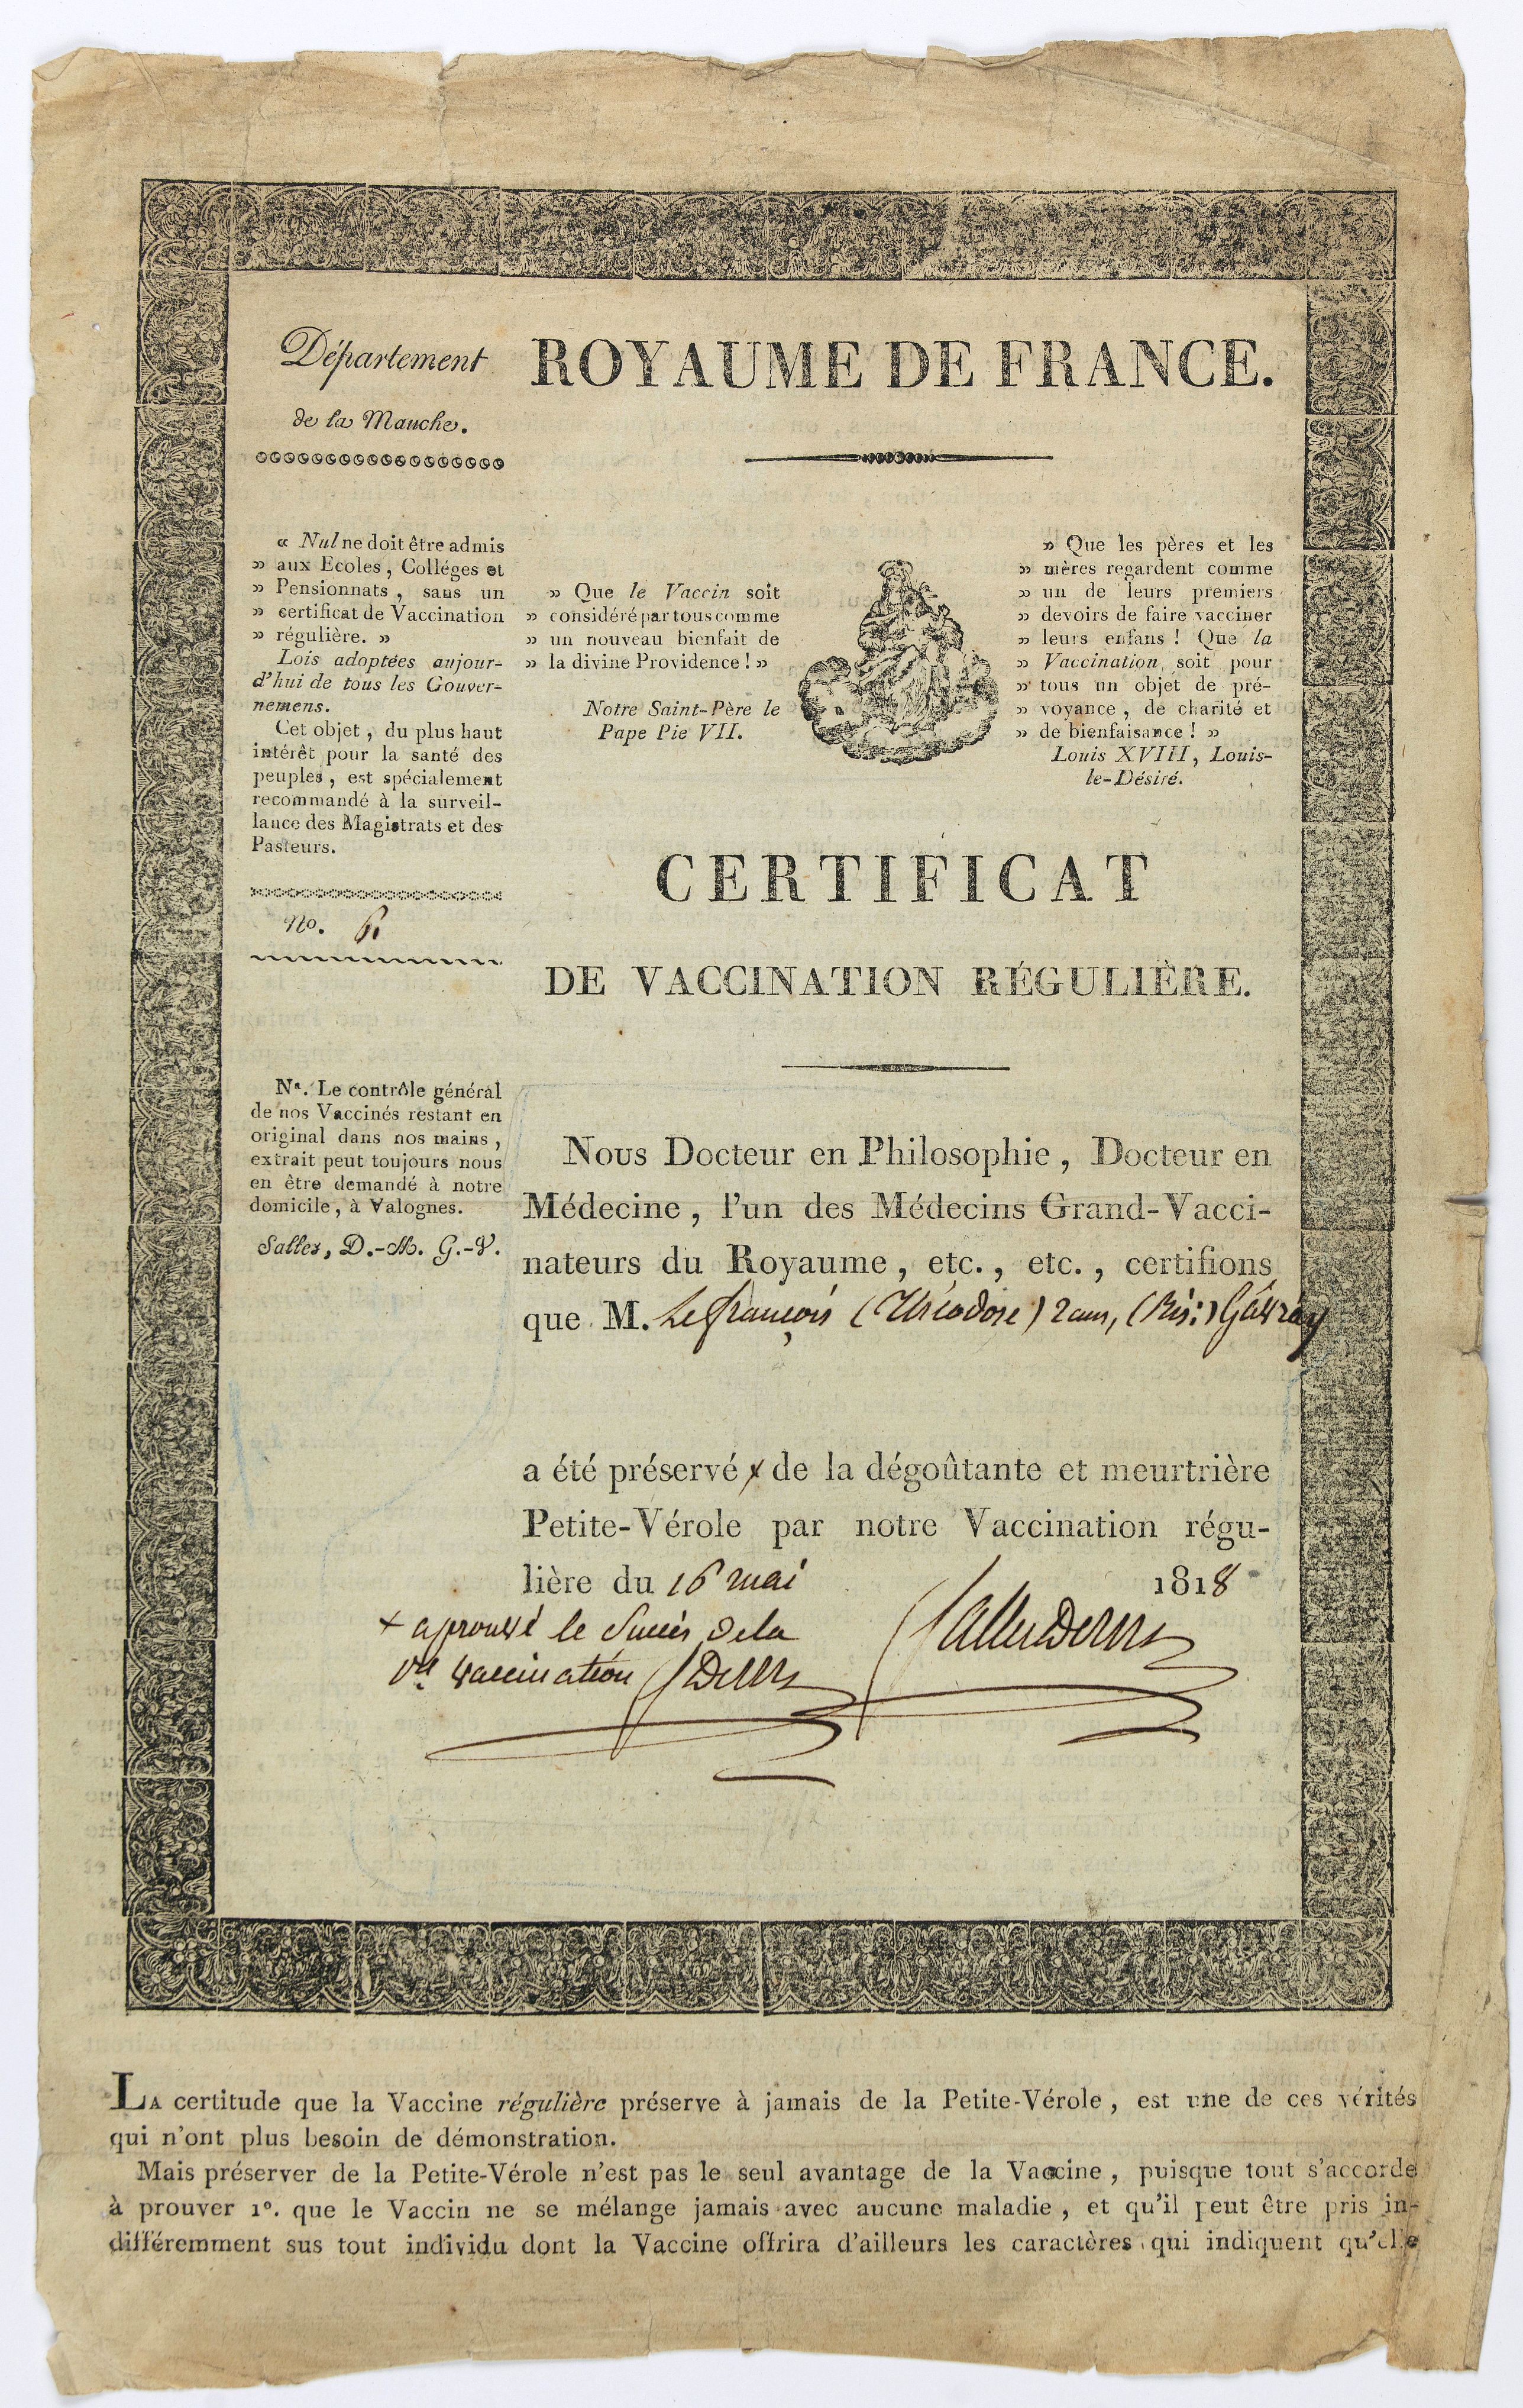 Département
de la Manche.
ROYAUME DE FRANCE.
« Nul ne doit être admis
» aux Ecoles, Colléges et
» Pensionnats, sans un
» certificat de Vaccination
» régulière. »
Lois adoptées aujour-
d'hui de tous les Gouver-
nemens.
Cet objet, du plus haut
intérêt pour la santé des
peuples, est spécialement
recommandé à la surveil-
lance des Magistrats et des
Pasteurs.
No. 6.
» Que le Vaccin soit
» considéré par tous comme
» un nouveau bienfait de
» la divine Providence ! »
Notre Saint-Père le
Pape Pie VII.
» Que les pères et les
» mères regardent comme
» un de leurs premiers
» devoirs de faire vacciner
» leurs enfans ! Que la
» Vaccination soit pour
» tous un objet de pré-
» voyance, de charité et
» de bienfaisance ! »
Louis XVIII, Louis-
le-Désiré.
CERTIFICAT
DE VACCINATION RÉGULIÈRE.
Nª. Le contrôle général
de nos Vaccinés restant en
original dans nos mains,
extrait peut toujours nous
en être demandé à notre
domicile, à Valognes.
Salles, D.-M. G.-V.
Nous Docteur en Philosophie, Docteur en
Médecine, l'un des Médecins Grand-Vacci-
nateurs du Royaume, etc., etc., certifions
que M. Lefrançois (Théodore) 2 ans, (Rés:) Gavray
a été préservé x de la dégoûtante et meurtrière
Petite-Vérole par notre Vaccination régu-
lière du 16 mai 1818
+ a prouvé le succès de la
vaccination
LA certitude que la Vaccine régulière préserve à jamais de la Petite-Vérole, est une de ces vérités
qui n'ont plus besoin de démonstration.
Mais préserver de la Petite-Vérole n'est pas le seul avantage de la Vaccine, puisque tout s'accorde
à prouver 1°. que le Vaccin ne se mélange jamais avec aucune maladie, et qu'il peut être pris in-
différemment sus tout individu dont la Vaccine offrira d'ailleurs les caractères qui indiquent qu'elle